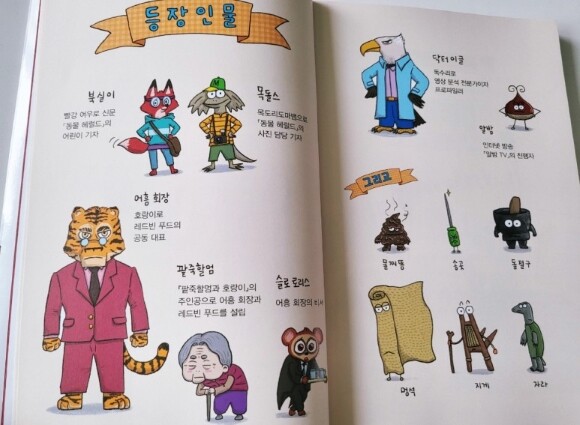 등장인물
북실이
빨강 여우로 신문
「동물 헤럴드」의
어린이 기자
목돌스
목도리도마뱀으로
「동물 헤럴드」의
사진 담당 기자
어흥 회장
호랑이로
레드빈 푸드의
공동 대표
팥죽할멈
「팥죽할멈과 호랑이」의
주인공으로 어흥 회장과
레드빈 푸드를 설립
슬로 로리스
어흥 회장의 비서
닥터 이글
독수리로
영상 분석 전문가이자
프로파일러
알밤
인터넷 방송
「알밤 TV」의 진행자
그리고
물찌똥
송곳
돌절구
멍석
지게
자라